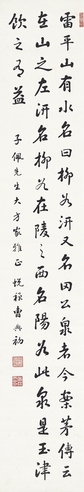 雷平山有水名曰柳谷汧又名曰公泉者今案茅傳云
在山之左汧名柳谷在陵之西名陽谷此泉是玉津
飲之有益
子佩先生大方家雅正 悅